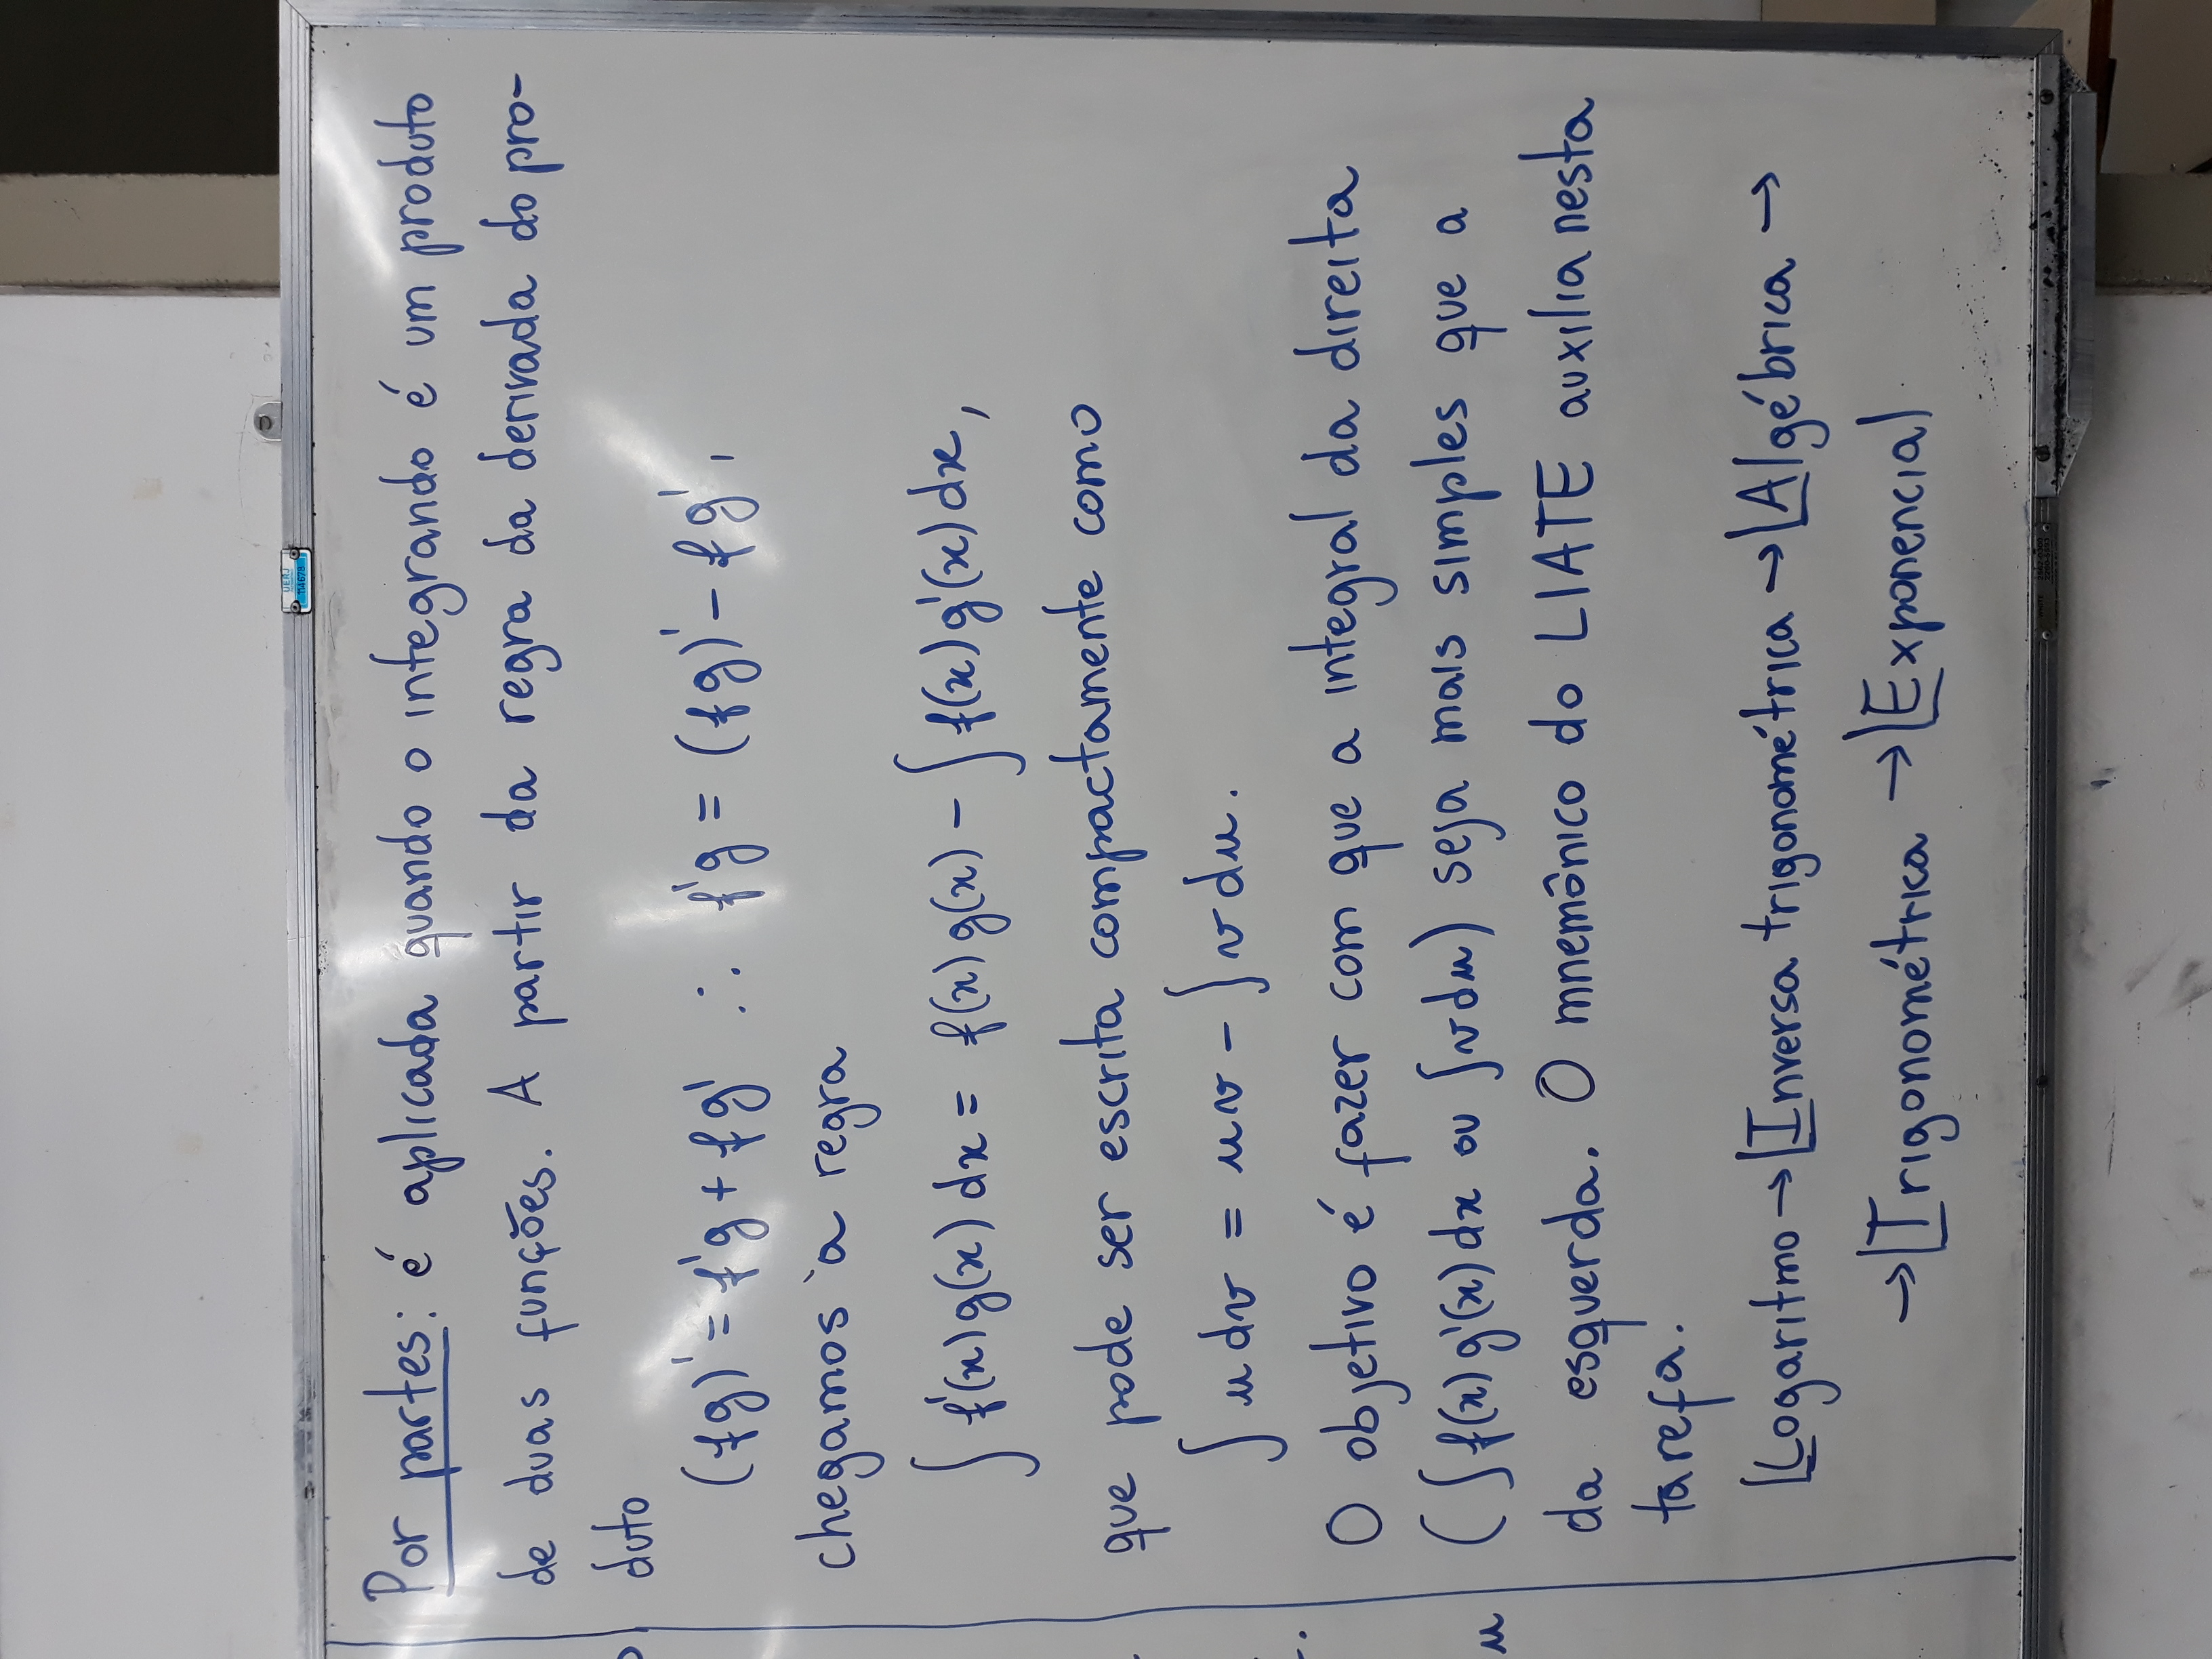 UERJ
114678
Por partes: é aplicada quando o integrando é um produto
de duas funções. A partir da regra da derivada do pro-
duto
(fg)' = f'g + fg' ∴ f'g = (fg)' - fg',
chegamos à regra
∫ f'(x)g(x) dx = f(x)g(x) - ∫ f(x)g'(x)dx,
que pode ser escrita compactamente como
∫ u dv = uv - ∫ v du.
O objetivo é fazer com que a integral da direita
(∫ f(x)g'(x)dx ou ∫ v du) seja mais simples que a
da esquerda. O mnemônico do LIATE auxilia nesta
tarefa:
Logaritmo → Inversa trigonométrica → Algébrica →
→ Trigonométrica → Exponencial
u